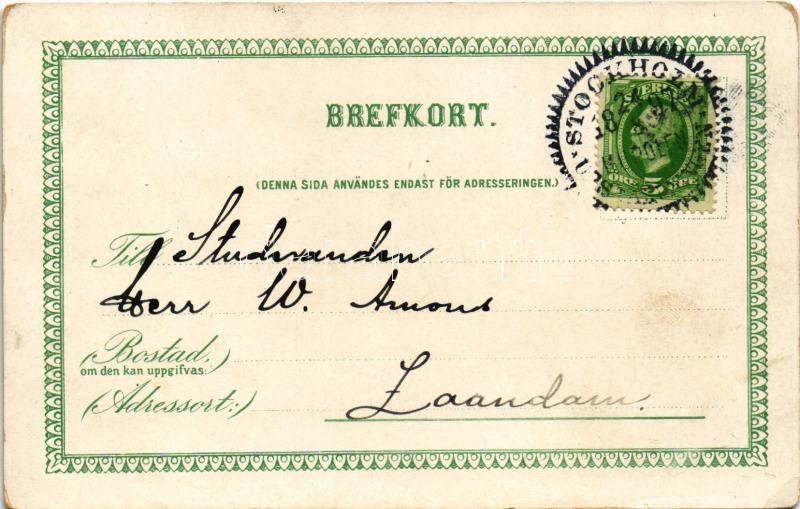 STOCKHOLM
SVERIGE
ÖRE 5 ÖRE
BREFKORT.
(DENNA SIDA ANVÄNDES ENDAST FÖR ADRESSERINGEN.)
Till Studeranden
Herr W. Amons
(Bostad,)
om den kan uppgifvas:
(Adressort:) Zaandam.